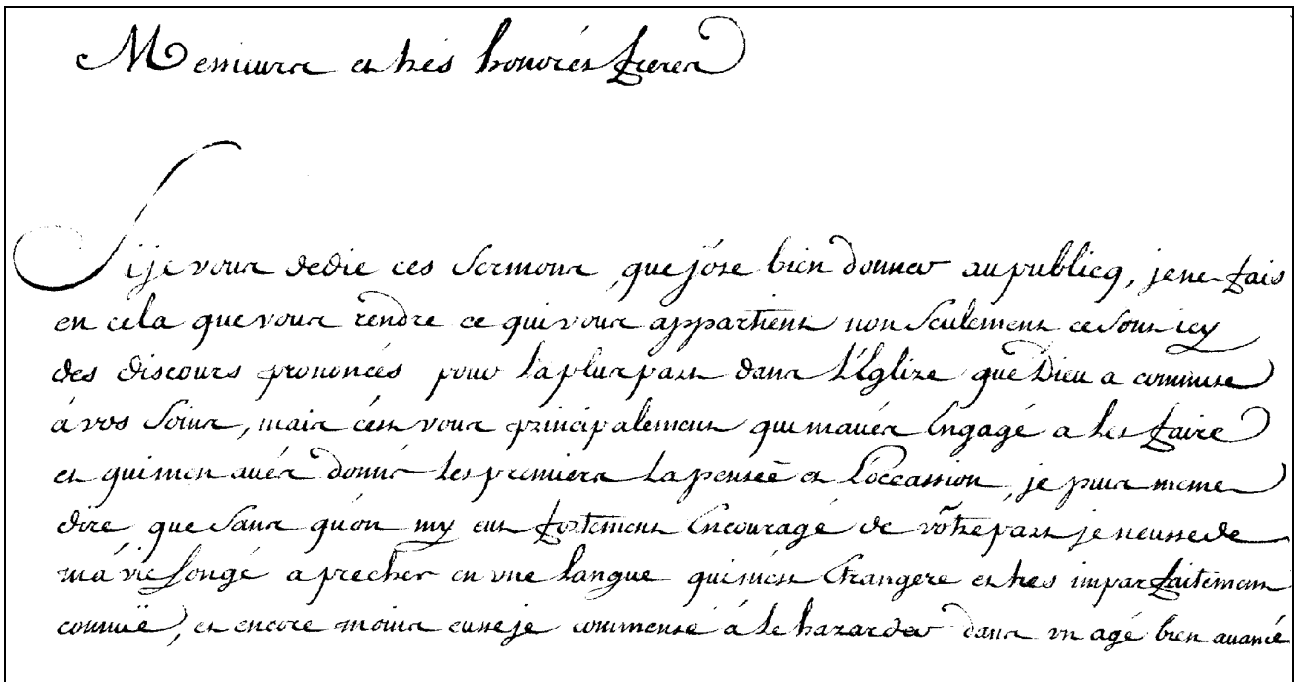 Messieurs et trés honorés freres
Si je vous dedie ces Sermons, que j'ôse bien donner au publicq, je ne fais
en cela que vous rendre ce qui vous appartient non Seulement ce Sont icy
des discours prononcés pour la plus part dans l'Eglize que Dieu a commise
á vos Soins, mais c'est vous principalement qui m'avés Engagé a les faire
et qui m'en avés donné les premiers la pensée et l'occassion, je puis meme
dire que Sans qu'on my eut fortement Encouragé de vôtre part je n'eusse de
ma vie Songé a precher en vne langue qui m'est Etrangere et tres imparfaitement
connuë, et encore moins eusse je commensé á le hazarder dans vn agé bien auancé